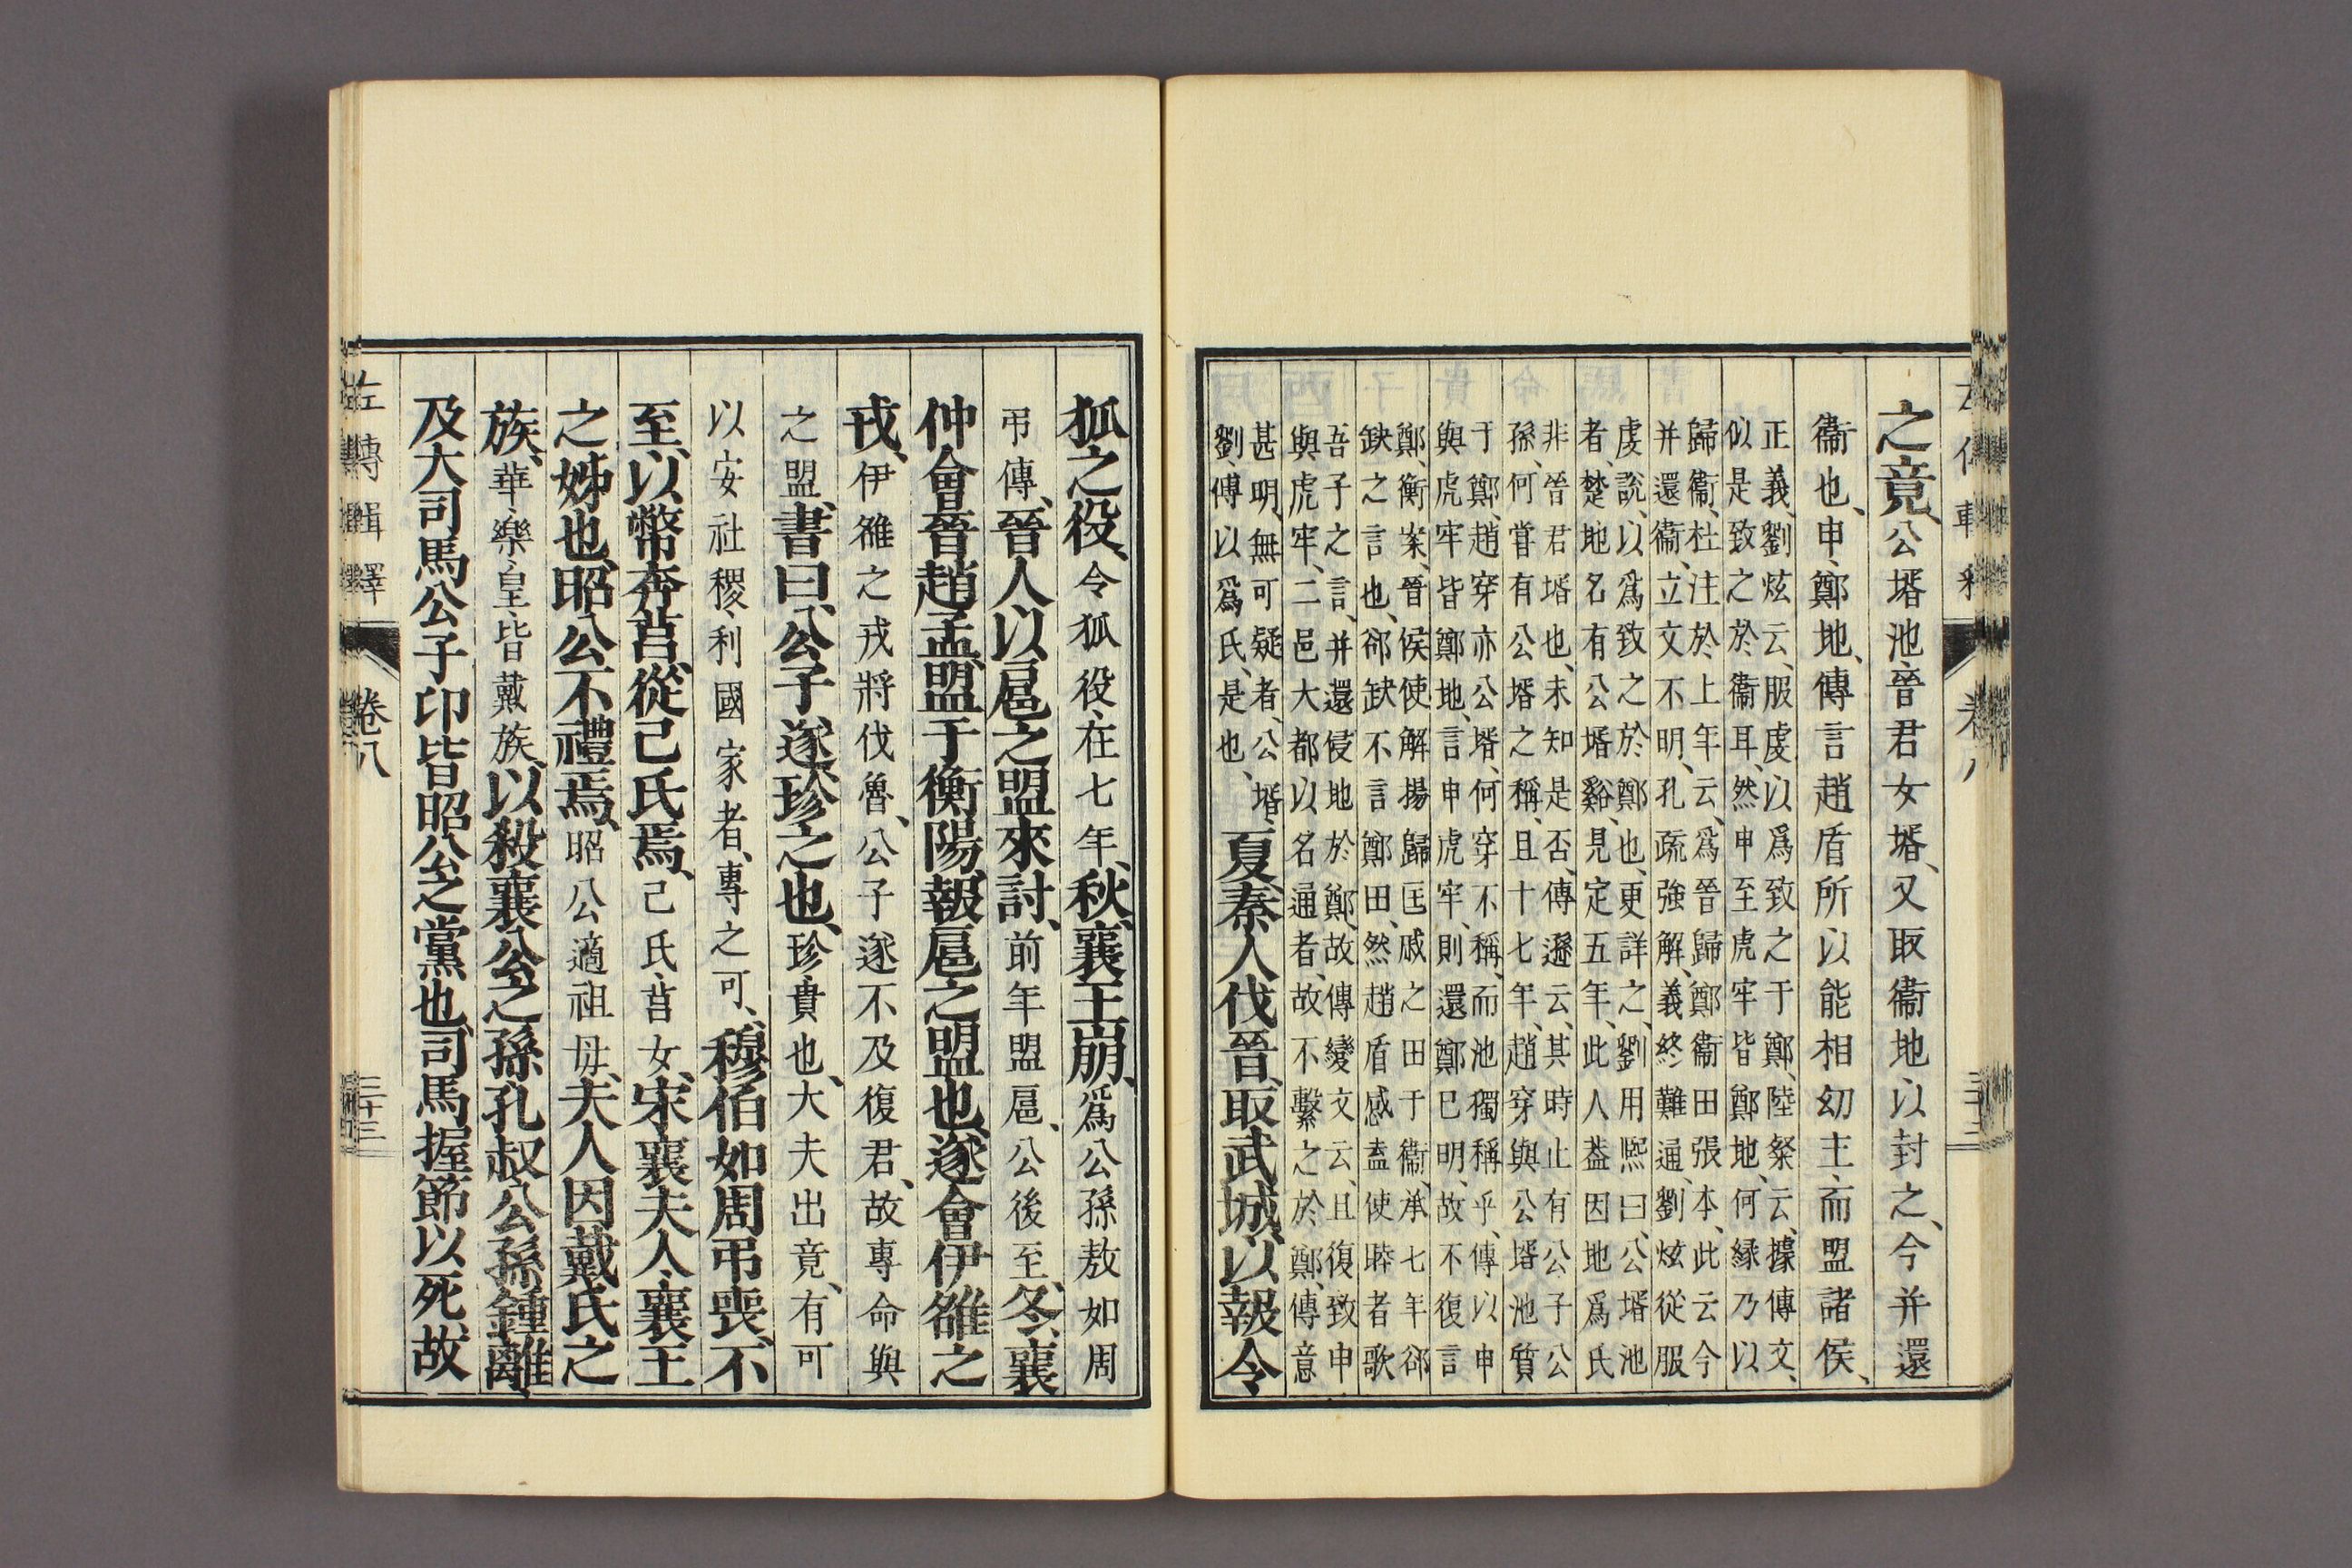 之竟、公壻池、晉君女壻、又取衞地以封之、今并還
衞也、申、鄭地、傳言趙盾所以能相幼主、而盟諸侯、
正義、劉炫云、服虔以爲致之于鄭、陸粲云、據傳文、
似是致之於衞耳、然申至虎牢皆鄭地、何縁乃以
歸衞、杜注於上年云、爲晉歸鄭衞田張本、此云今
并還衞、立文不明、孔疏強解、義終難通、劉炫從服
虔說、以爲致之於鄭也、更詳之、劉用熙曰、公壻池
者、楚地名有公壻谿、見定五年、此人葢因地爲氏
非晉君壻也、未知是否、傳遜云、其時止有公子公
孫、何嘗有公壻之稱、且十七年、趙穿與公壻池質
于鄭、趙穿亦公壻、何穿不稱、而池獨稱乎、傳以申
與虎牢皆鄭地、言申虎牢、則還鄭巳明、故不復言
鄭、衡案、晉侯使解揚歸匡戚之田于衞、承七年郤
缺之言也、郤缺不言鄭田、然趙盾感盍使睦者歌
吾子之言、并還侵地於鄭、故傳變文云、且復致申
與虎牢、二邑大都以名通者、故不繫之於鄭、傳意
甚明、無可疑者、公壻、
劉、傅以爲氏、是也、夏、秦人伐晉、取武城、以報令
狐之役、令狐役、在七年、秋、襄王崩、爲公孫敖如周
弔傳、晉人以扈之盟來討、前年盟扈、公後至、冬、襄
仲會晉趙孟、盟于衡陽、報扈之盟也、遂會伊雒之
戎、伊雒之戎將伐魯、公子遂不及復君、故專命與
之盟、書曰、公子遂、珍之也、珍、貴也、大夫出竟、有可
以安社稷、利國家者、專之可、穆伯如周弔喪、不
至、以幣奔莒、從己氏焉、己氏、莒女、宋襄夫人、襄王
之姊也、昭公不禮焉、昭公適祖母、夫人因戴氏之
族、華、樂、皇、皆戴族、以殺襄公之孫孔叔、公孫鍾離、
及大司馬公子卬、皆昭公之黨也、司馬握節以死、故
左傳輯釋 卷八 三十三